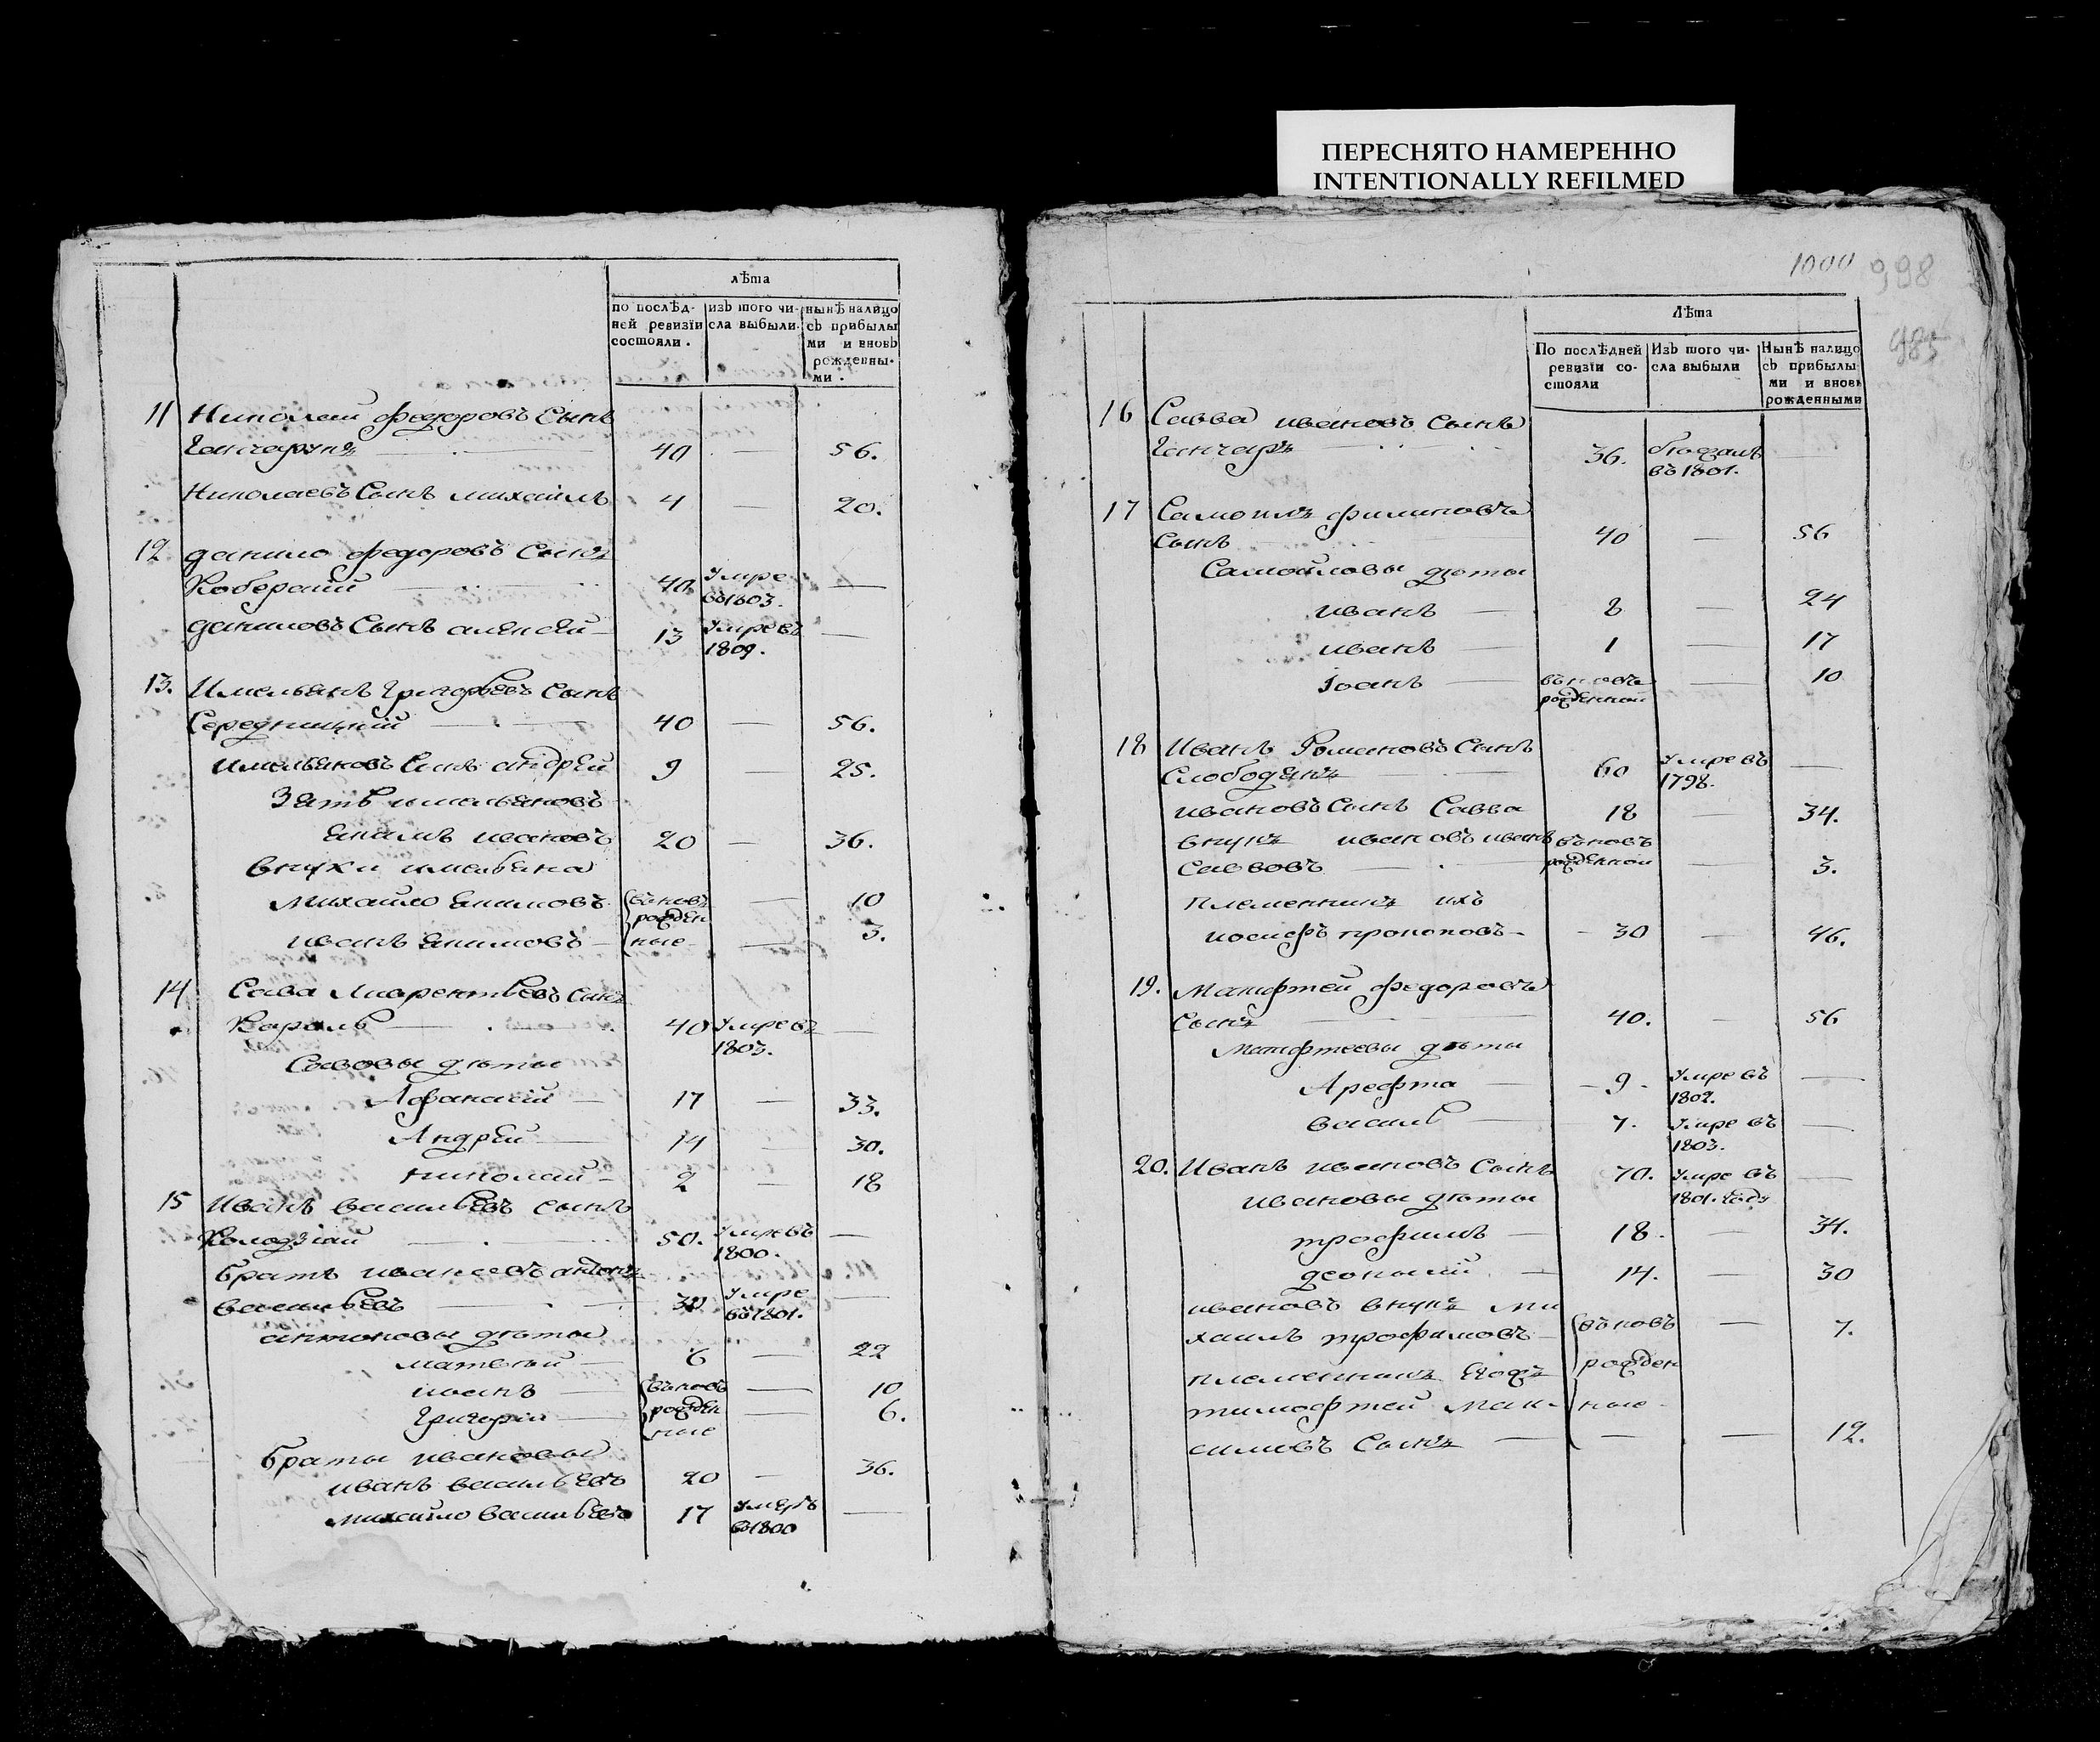 ПЕРЕСНЯТО НАМЕРЕННО
INTENTIONALLY REFILMED
лѣта
по послѣд- изъ того чи- нынѣ налицо
ней ревизїи сла выбыли. съ прибылы
состояли. ми и вновь
рожденны-
ми.
11 Николай федоровъ Сынъ
Ганчарукъ — 40 — 56.
Николаевъ Сынъ михайлъ 4 — 20.
12 данило федоровъ Сынъ
40 Умре въ 1803. —
даниловъ Сынъ алексей — 13 Умре въ 1809. —
13. Имельянъ Григорьевъ Сынъ
Середницкий — 40 — 56.
имельяновъ Сынъ андрей 9 — 25.
Зять имельяновъ
якимъ ивановъ 20 — 36.
внуки имельяна
михайло якимовъ вновъ — 10
рожден
иванъ якимовъ — ные — 3.
14 Сава Лаврентьевъ Сынъ
Кароль — 40 Умре въ 1803. —
Савовы дѣты
Афанасий — 17 — 33.
Андрей — 14 — 30.
николай — 2 — 18
15 Иванъ васильевъ сынъ
Колодзіай 50. Умре въ 1800. —
братъ ивановъ антонъ
васильевъ — 30 Умре въ 1801. —
антоновы дѣты
матвей — 6 — 22
иванъ — въновъ — 10
Григорій — рожден — 6.
ные
браты ивановы
иванъ васильевъ 20 — 36.
михайло васильевъ 17 Умеръ въ 1800 —
1000 998
985
Лѣта
По послѣдней Изъ того чи- Нынѣ налицо
ревизїи со- сла выбыли съ прибылы
стояли ми и вновь
рожденными
16 Савва ивановъ сынъ
Ганчаръ 36. отдатъ въ 1801. —
17 Самоилъ филиповъ
сынъ — 40 — 56
Самойловы дѣты
иванъ — 8 — 24
иванъ — 1 — 17
Іоанъ — въновъ — 10
рожденной
18 Иванъ Романовъ Сынъ
Слободянъ — 60 Умре въ 1798. —
ивановъ Сынъ Савва 18 — 34.
внукъ ивановъ иванъ въновъ
Саввовъ — рожденной — 3.
племенникъ ихъ
иосифъ прокоповъ — 30 — 46.
19. Матфтей федоровъ
сынъ — 40. — 56
Матфтеевы дѣты
Арефта — 9 Умре въ 1802. —
василь — 7. Умре въ 1803. —
20. Иванъ ивановъ сынъ 70. Умре въ 1801. году —
ивановы дѣты
трофимъ — 18. — 34.
деонысий — 14. — 30
ивановъ внукъ ми
хаилъ трофимовъ — въновъ — 7.
племенникъ рожден
тимофтей мак- ные
симовъ сынъ — — — 12.